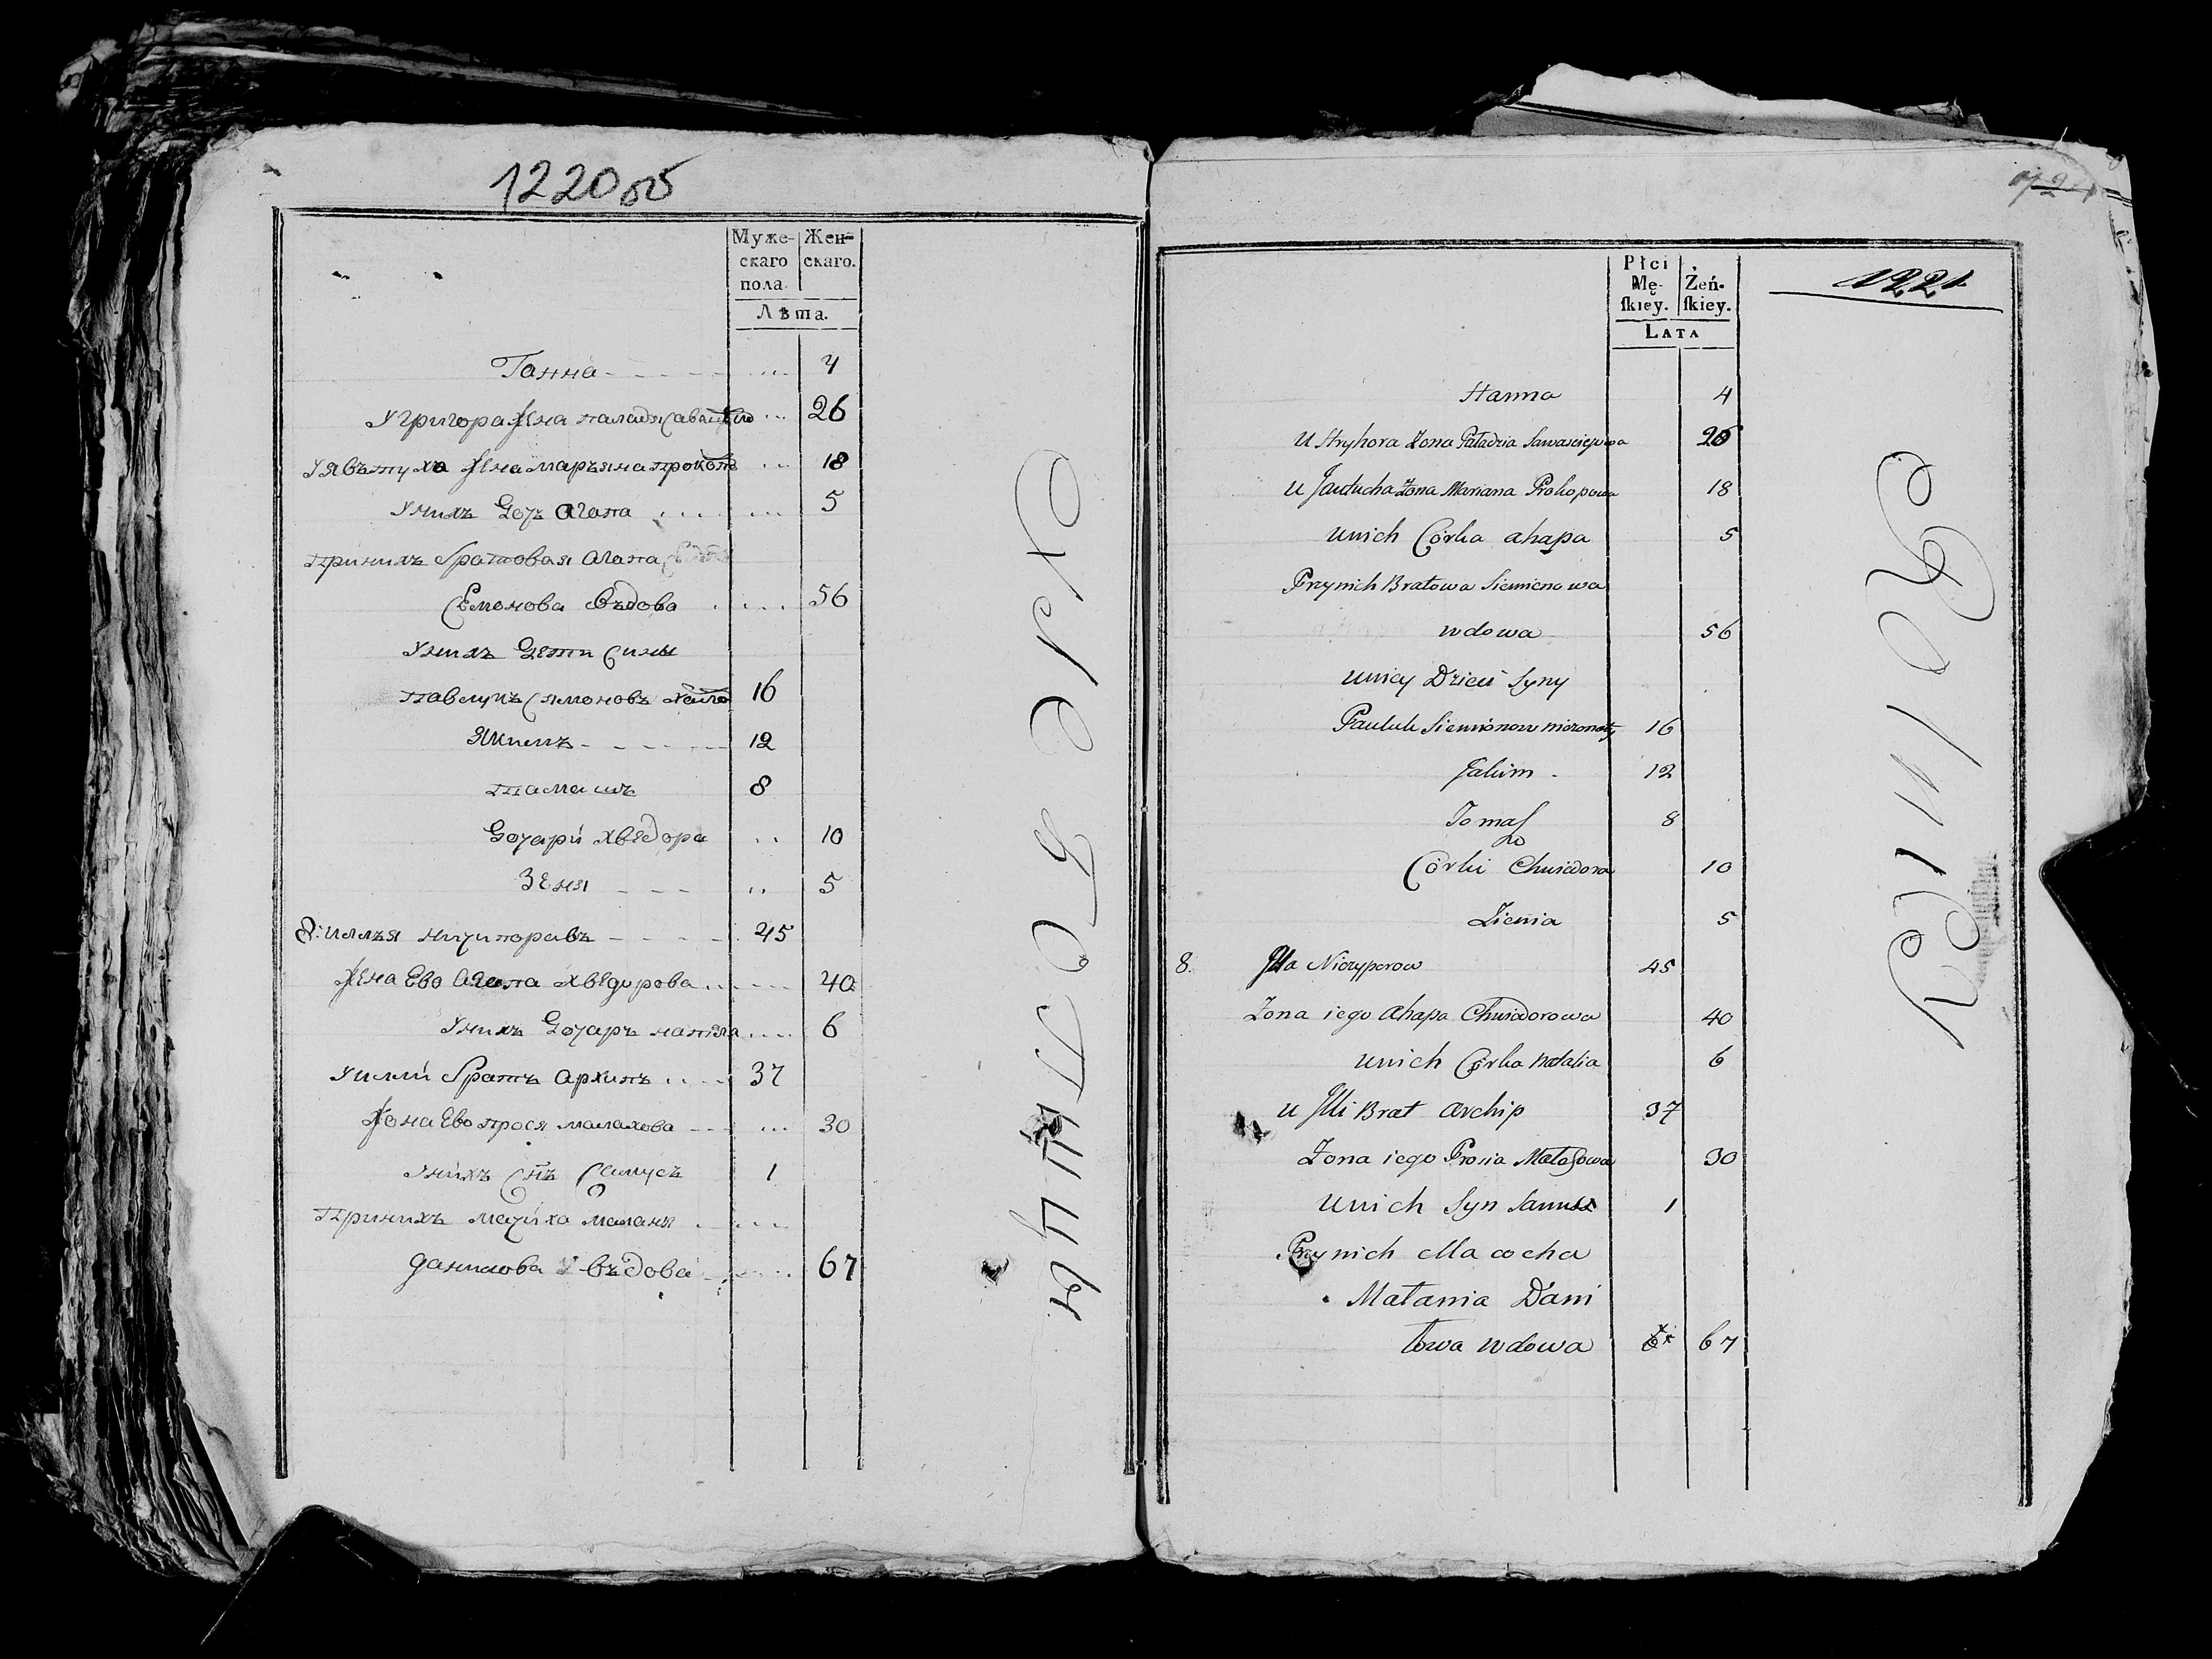 1220об
Муже-
скаго
пола.
Жен-
скаго.
Лѣта.
Ганна 4
У Григора жена паладя Савасте 26
У явътуха жена маръяна прокопо 18
У нихъ Дочь Агапа 5
При нихъ братовая Агапа
Семонова въдова 56
У нихъ Дети Сины
Павлукъ Сямоновъ 16
Якимъ 12
Тамашъ 8
Дочари хвядора 10
Зеня 5
8: Иллъя ничипоравъ 45
Жена Ево Агапа хведирова 40
У нихъ Дочаръ наталя 6
У илли братъ архипъ 37
Жона Ево прося малахова 30
У нихъ Снъ Самусъ 1
При нихъ мачиха маланя
данилова въдова 67
1221
Płci
Mę-
ſkiey.
Żeń-
ſkiey.
LATA
1221
Hanna 4
U Hryhora Zona Paładzia Sawasciejowa 26
U Jautucha Zona Mariana Prokopowa 18
Unich Córka ahapa 5
Przynich Bratowa Siemionowa
wdowa 56
Unicy Dzieci Syny
Pauluk Siemionow niezonaty 16
Jakim 12
Tomaſz 8
Córki Chwiedora 10
Zienia 5
8. Jlla Niczyporow 45
Zona iego Ahapa Chwiedorowa 40
Unich Córka Natalia 6
U Jlli Brat Archip 37
Zona iego Prosia Małachowa 30
Unich Syn Samus 1
Przynich Macocha
Małania Dani
łowa wdowa 67